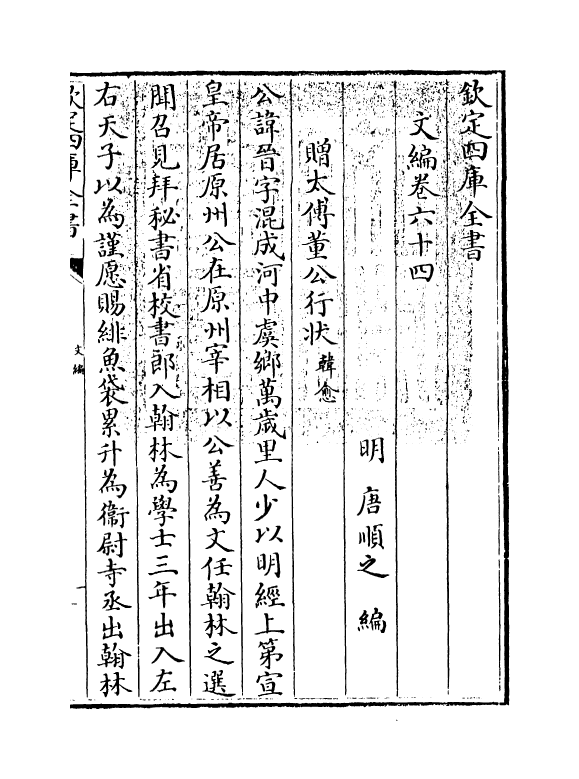 欽定四庫全書
文編卷六十四
明 唐順之 編
贈太傅董公行狀 韓愈
公諱晉字混成河中虞鄉萬歲里人少以明經上第宣
皇帝居原州公在原州宰相以公善為文任翰林之選
聞召見拜秘書省校書郎入翰林為學士三年出入左
右天子以為謹愿賜緋魚袋累升為衞尉寺丞出翰林
欽定四庫全書
文編
一